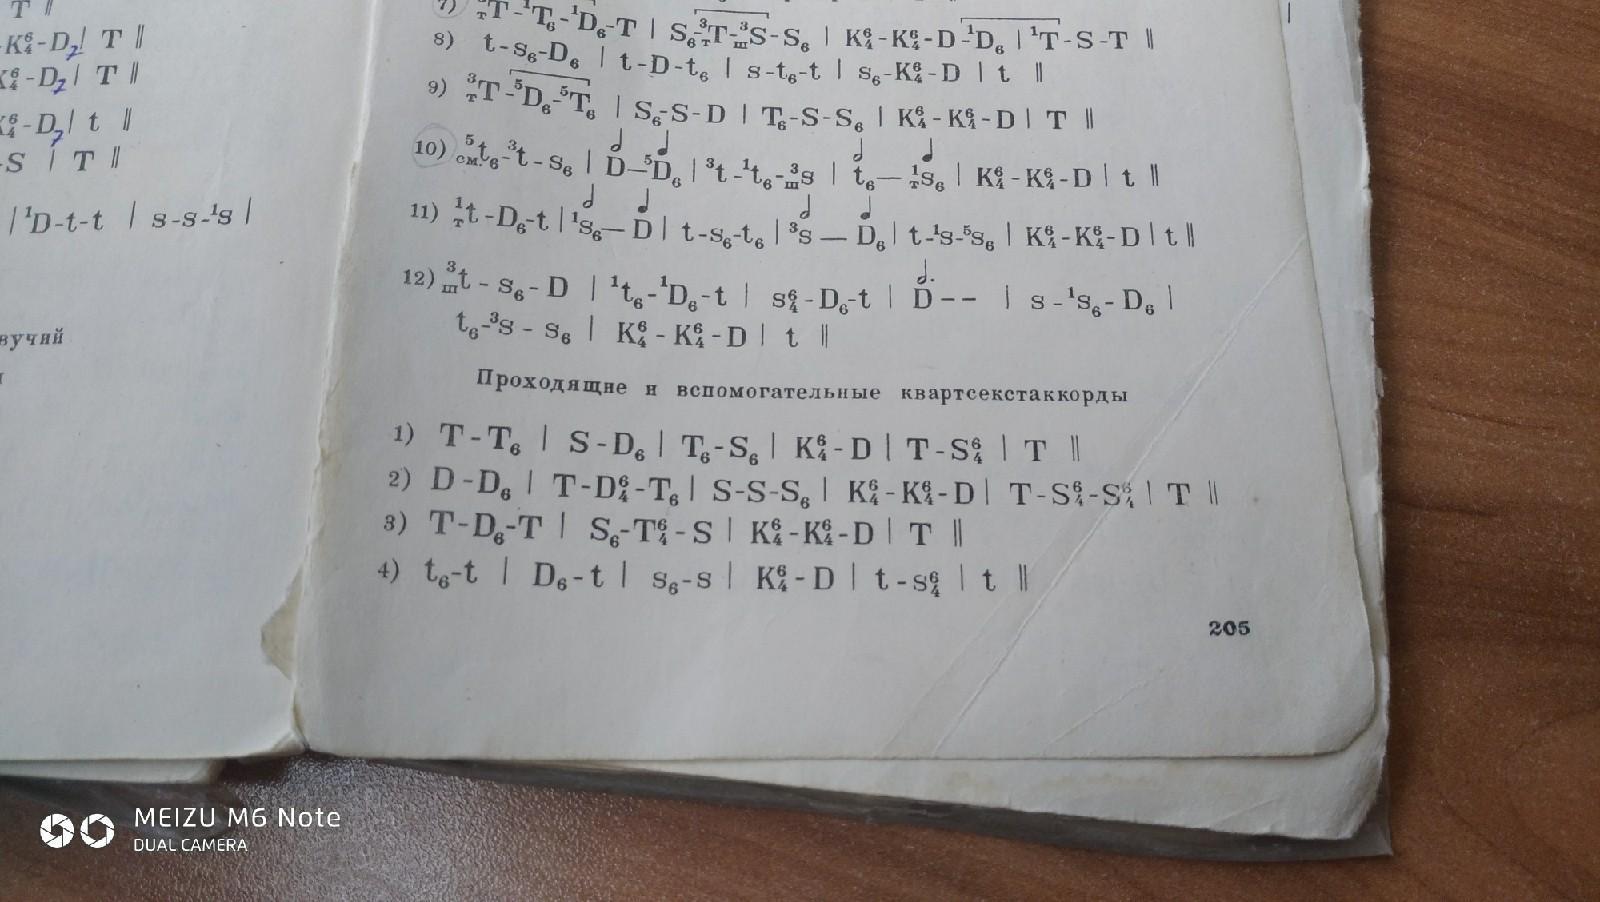 T ||
-K⁶₄-D₇| T ||
K⁶₄-D₇| T ||
K⁶₄-D₇| t ||
-S | T ||
| ¹D-t-t | s-s-¹s |
вучий
7) ³тT-¹T₆-¹D₆-T | S₆-³тT-³шS-S₆ | K⁶₄-K⁶₄-D-¹D₆ | ¹T-S-T ||
8) t-s₆-D₆ | t-D-t₆ | s-t₆-t | s₆-K⁶₄-D | t ||
9) ³тT-⁵D₆-⁵T₆ | S₆-S-D | T₆-S-S₆ | K⁶₄-K⁶₄-D | T ||
10) ⁵см.t₆-³t-s₆ | D—⁵D₆ | ³t-¹t₆-³шs | t₆—¹тs₆ | K⁶₄-K⁶₄-D | t ||
11) ¹тt-D₆-t | ¹s₆—D | t-s₆-t₆ | ³s—D₆ | t-¹s-⁵s₆ | K⁶₄-K⁶₄-D | t ||
12) ³шt-s₆-D | ¹t₆-¹D₆-t | s⁶₄-D₆-t | D-- | s-¹s₆-D₆ |
t₆-³s-s₆ | K⁶₄-K⁶₄-D | t ||
Проходящие и вспомогательные квартсекстаккорды
1) T-T₆ | S-D₆ | T₆-S₆ | K⁶₄-D | T-S⁶₄ | T ||
2) D-D₆ | T-D⁶₄-T₆ | S-S-S₆ | K⁶₄-K⁶₄-D | T-S⁶₄-S⁶₄ | T ||
3) T-D₆-T | S₆-T⁶₄-S | K⁶₄-K⁶₄-D | T ||
4) t₆-t | D₆-t | s₆-s | K⁶₄-D | t-s⁶₄ | t ||
205
MEIZU M6 Note
DUAL CAMERA